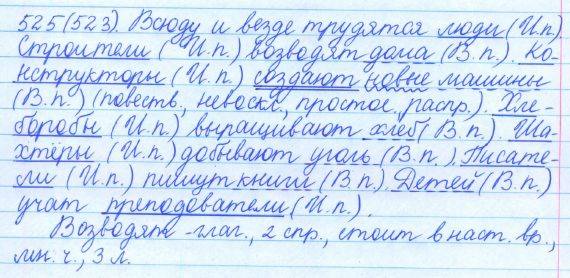 525(523). Всюду и везде трудятся люди (И.п.)
Строители (И.п.) возводят дома (В.п.). Ко-
нструкторы (И.п.) создают новые машины
(В.п.) (повеств., невоскл., простое, распр.). Хле-
боробы (И.п.) выращивают хлеб (В.п.). Ша-
хтёры (И.п.) добывают уголь (В.п.). Писате-
ли (И.п.) пишут книги (В.п.). Детей (В.п.)
учат преподователи (И.п.).
Возводят - глаг., 2 спр., стоит в наст. вр.,
мн. ч., 3 л.